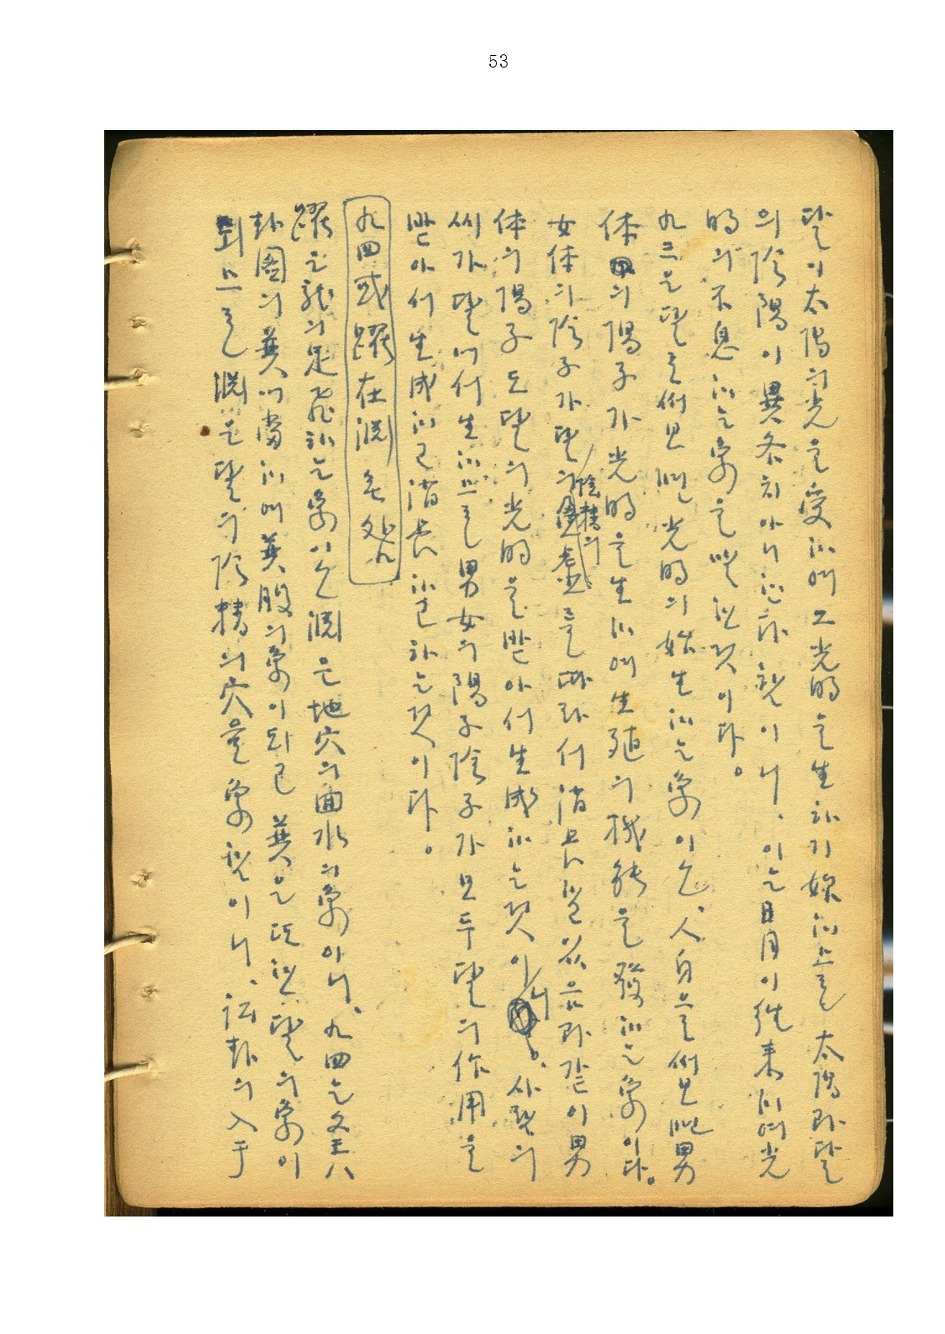 53
달이 太陽의 光을 受하여 그 光明을 生하기 始하므로 太陽과 달
의 陰陽이 異하지 아니 한 이니, 이는 日月이 往來하여 光
明의 不息하는 象을 말한 것이다.
九三은 달로 써 보면 光明의 始生하는 象이오, 人身으로 써 보면 男
体의 陽子가 光明을 生하여 生殖의 機能을 發하는 象이다.
女体의 陰子가 달의 陰精의 를 따라서 消長 과 같이 男
体의 陽子도 달의 光明을 받아서 生成하는 것이니, 사람의
씨가 달에서 生하므로 男女의 陽子 陰子가 모두 달의 作用을
받아서 生成하고 消長하고 하는 것이다.
九四 或躍在淵 无咎
躍은 龍의 足 하는 象이오 淵은 地穴의 水의 象이니, 九四는 八
卦圖의 巽에 當하여 巽股의 象이 되고 巽은 또한 달의 象이
되므로 淵은 달의 陰精의 穴을 象한 이니, 坎卦의 入于